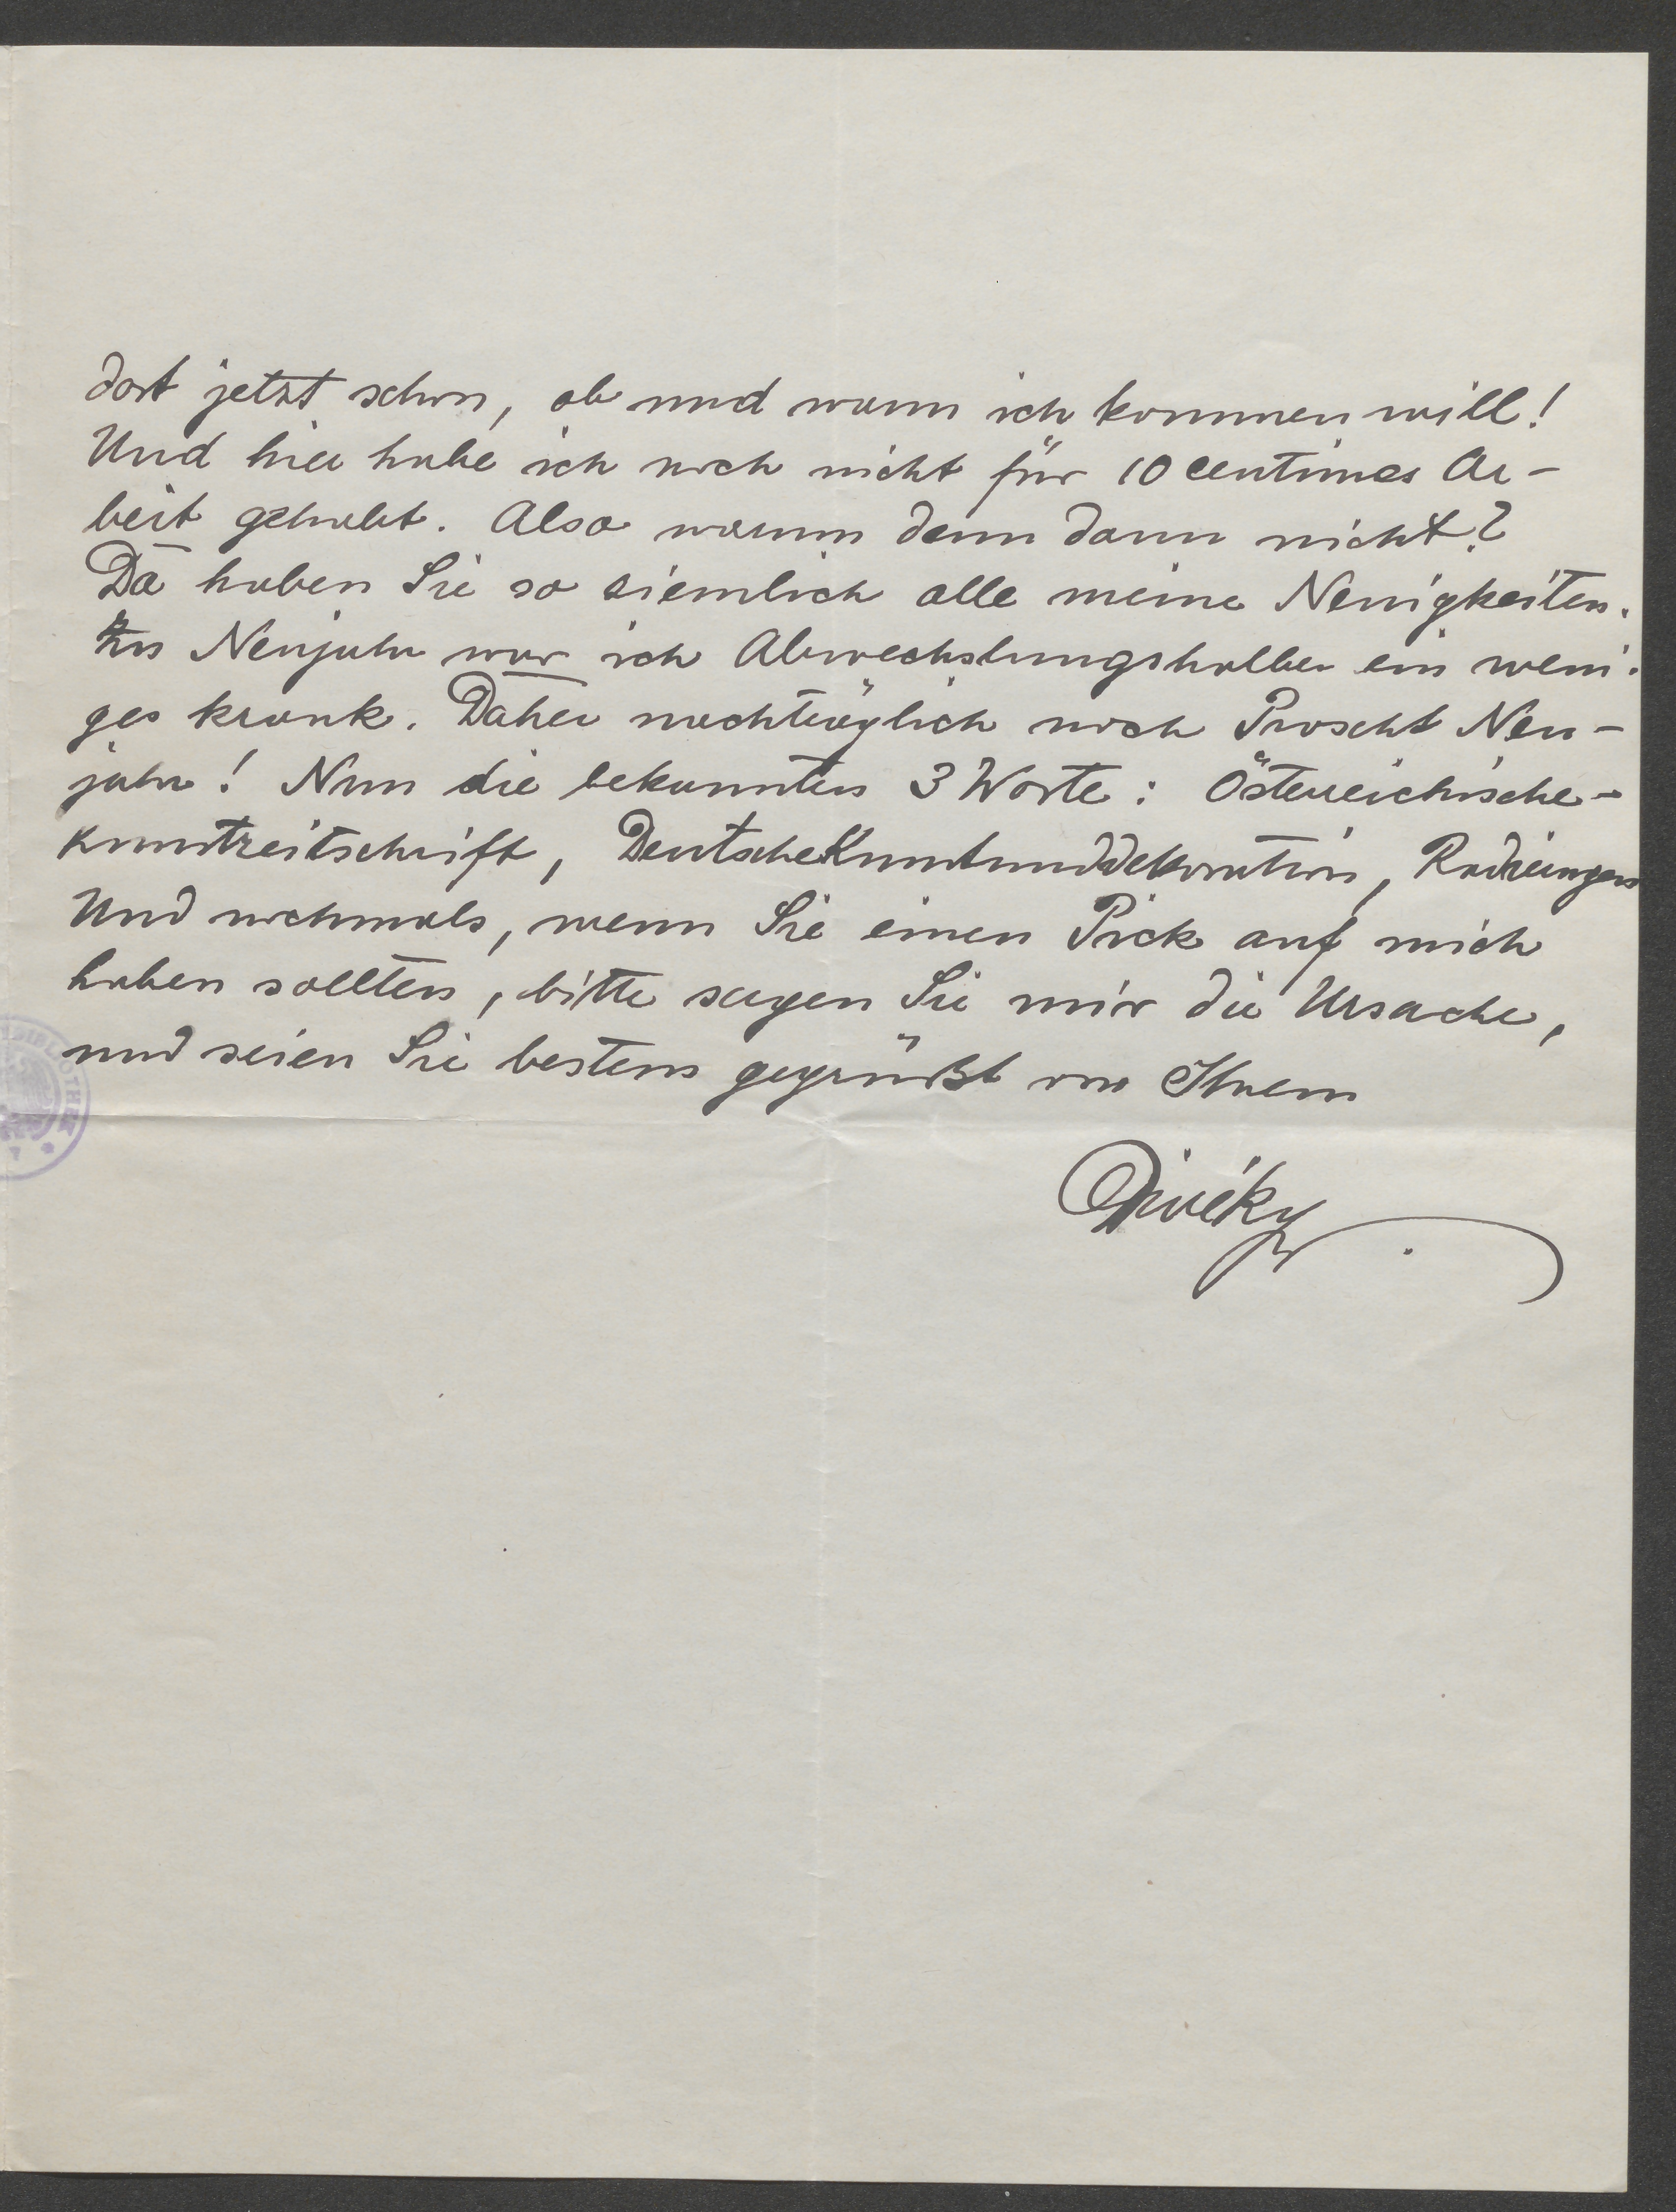 dort jetzt schon, ob und wann ich kommen will!
Und hier habe ich noch nicht für 10 centimes Ar-
beit gehabt. Also warum denn dann nicht?
Da haben Sie so ziemlich alle meine Neuigkeiten.
Zu Neujahr war ich Abwechslungshalber ein weni-
ges krank. Daher nachträglich noch Proscht Neu-
jahr! Nun die bekannten 3 Worte: Österreichische-
Kunstzeitschrift, DeutscheKunstunddekoration, Radierungen
Und nochmals, wenn Sie einen Pick auf mich
haben sollten, bitte sagen Sie mir die Ursache,
und seien Sie bestens gegrüßt von Ihrem
Divéky